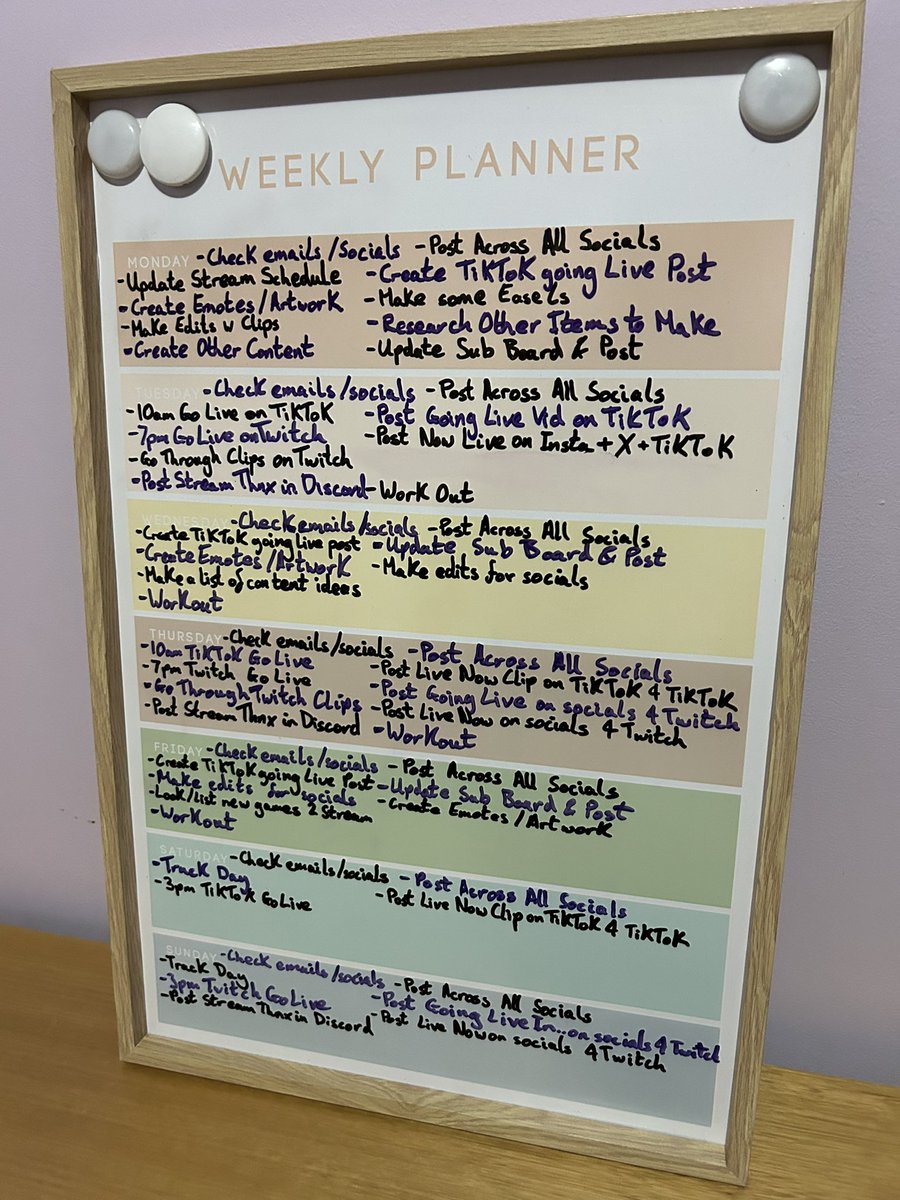 WEEKLY PLANNER
MONDAY -Check emails/Socials -Post Across All Socials
-Update Stream Schedule -Create TikTok going Live Post
-Create Emotes/Artwork -Make some Easels
-Make Edits w Clips -Research Other Items to Make
-Create Other Content -Update Sub Board & Post
TUESDAY -Check emails/socials -Post Across All Socials
-10am Go Live on TikTok -Post Going Live Vid on TikTok
-7pm Go Live on Twitch -Post Now Live on Insta + X + TikTok
-Go Through Clips on Twitch
-Post Stream Thnx in Discord -Work Out
WEDNESDAY -Check emails/socials -Post Across All Socials
-Create TikTok going live post -Update Sub Board & Post
-Create Emotes/Artwork -Make edits for socials
-Make a list of content ideas
-Workout
THURSDAY -Check emails/socials -Post Across All Socials
-10am TikTok Go Live -Post Live Now Clip on TikTok 4 TikTok
-7pm Twitch Go Live -Post Going Live on socials 4 Twitch
-Go Through Twitch Clips -Post Live Now on socials 4 Twitch
-Post Stream Thnx in Discord -Workout
FRIDAY -Check emails/socials -Post Across All Socials
-Create TikTok going Live Post -Update Sub Board & Post
-Make edits for socials -Create Emotes/Artwork
-Look/list new games 2 Stream
-Workout
SATURDAY -Check emails/socials -Post Across All Socials
-Track Day -Post Live Now Clip on TikTok 4 TikTok
-3pm TikTok Go Live
SUNDAY -Check emails/socials -Post Across All Socials
-Track Day -Post Going Live In...on socials 4 Twitch
-3pm Twitch Go Live -Post Live Now on socials 4 Twitch
-Post Stream Thnx in Discord